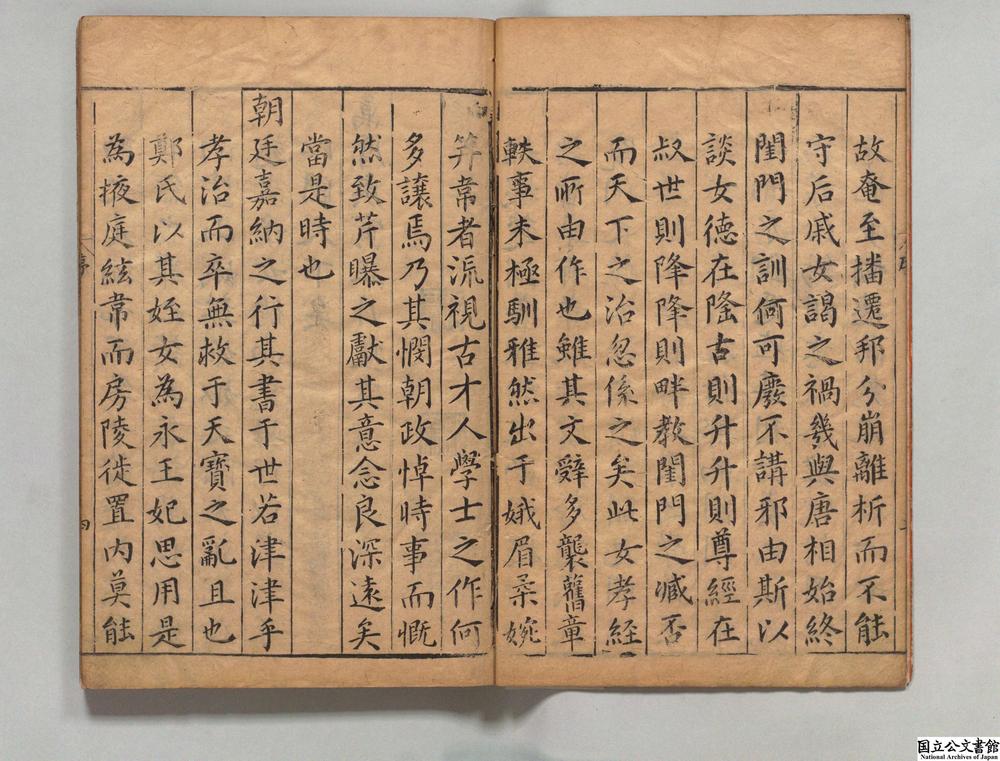 故奄至播遷邦分崩離析而不能
守后戚女謁之禍幾與唐相始終
閨門之訓何可廢不講邪由斯以
談女德在隆古則升升則尊經在
叔世則降降則畔教閨門之臧否
而天下之治忽係之矣此女孝經
之所由作也雖其文辭多襲舊章
軼事未極馴雅然出于娥眉柔婉
笄常者流視古才人學士之作何
多讓焉乃其憫朝政悼時事而慨
然致芹曝之獻其意念良深遠矣
當是時也
朝廷嘉納之行其書于世若津津乎
孝治而卒無救于天寶之亂且也
鄭氏以其姪女為永王妃思用是
為掖庭絃常而房陵徙置内莫能
序
四
国立公文書館
National Archives of Japan